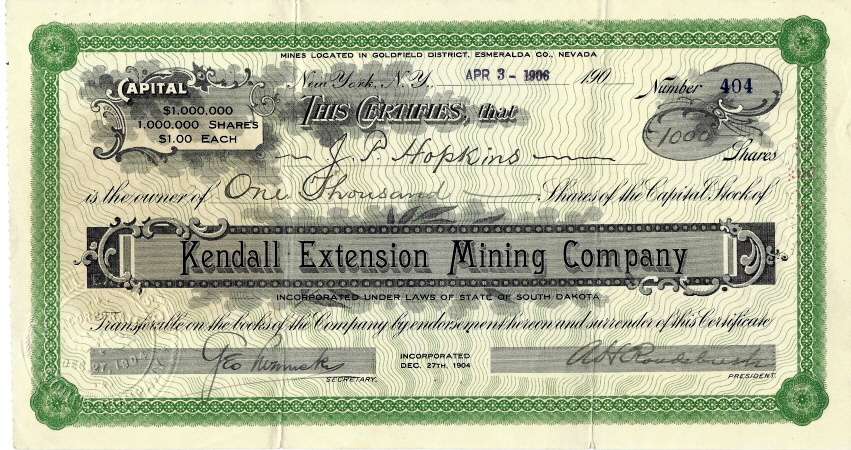 MINES LOCATED IN GOLDFIELD DISTRICT, ESMERALDA CO., NEVADA
CAPITAL
$1,000,000
1,000,000 SHARES
$1.00 EACH
New York, N.Y., APR 3 - 1906 190
Number 404
THIS CERTIFIES, that
1000
J. P. Hopkins
Shares
is the owner of One Thousand Shares of the Capital Stock of
Kendall Extension Mining Company
INCORPORATED UNDER LAWS OF STATE OF SOUTH DAKOTA
Transferable on the books of the Company by endorsement hereon and surrender of this Certificate
DEC 27, 1904
Geo
INCORPORATED
DEC. 27TH, 1904
A H Roudebush
SECRETARY.
PRESIDENT.